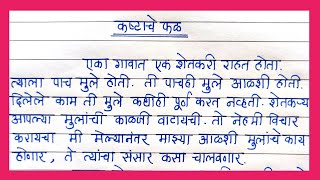 कष्टाचे फळ
एका गावात एक शेतकरी राहत होता.
त्याला पाच मुले होती. ती पाचही मुले आळशी होती.
दिलेले काम ती मुले कधीही पूर्ण करत नव्हती. शेतकऱ्याला
आपल्या मुलांची काळजी वाटायची. तो नेहमी विचार
करायचा मी मेल्यानंतर माझ्या आळशी मुलांचे काय
होणार, ते त्यांचा संसार कसा चालवणार.